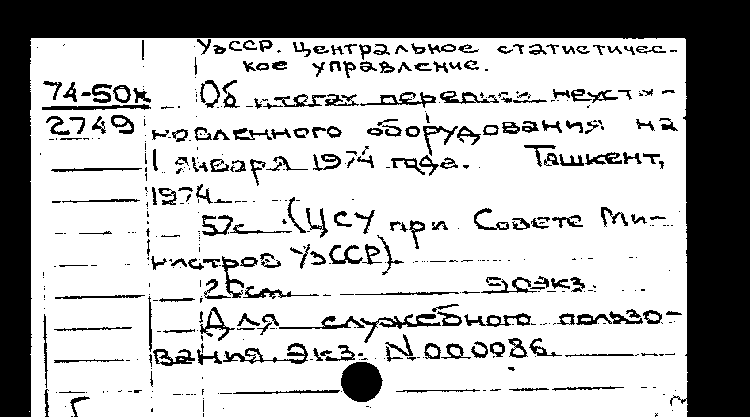 УзССР. Центральное статистичес-
кое управление.
74-50к Об итогах переписи неуста-
2749 новленного оборудования на
1 января 1974 года. Ташкент,
1974.
57с. (ЦСУ при Совете Ми-
нистров УзССР).
20см. 90экз.
Для служебного пользо-
вания. Экз. N 000086.